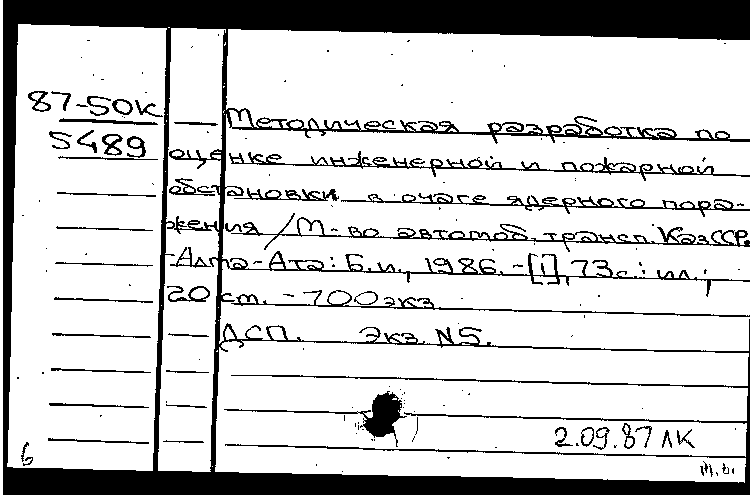 87-50к
5489
Методическая разработка по
оценке инженерной и пожарной
обстановки в очаге ядерного пора-
жения / М-во автомоб. трансп. КазССР.
-Алма-Ата: Б.и., 1986. -[1], 73с.: ил.;
20 ст. - 700экз
ДСП. Экз. N5.
2.09.87 ЛК
6